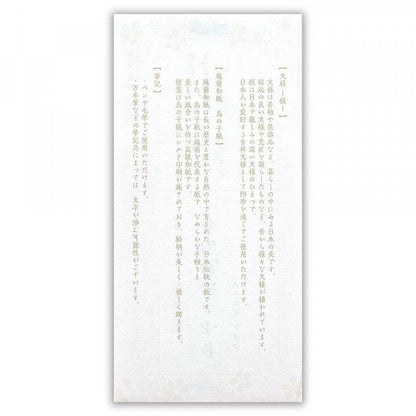 【文様ー桜ー】
文様は着物や装飾品など、暮らしの中にある日本の美です。
縁起の良い文様や意匠を凝らしたものなど、昔から様々な文様が描かれています。
桜は日本で親しみの深い文様のひとつで、
日本人が愛好する吉祥文様として四季を通じてご使用いただけます。
【越前和紙 鳥の子紙】
越前和紙は長い歴史と豊かな自然の中で育まれた、日本伝統の紙です。
また、鳥の子紙は越前を代表する紙で、なめらかな手触りと
美しい風合いを持つ高級和紙です。
便箋は鳥の子紙にシルク印刷が施されており、絵柄が美しく、優しく映ります。
【筆記】
・ペンや毛筆でご使用いただけます。
・万年筆などの筆記具によっては、文字が滲む可能性がございます。